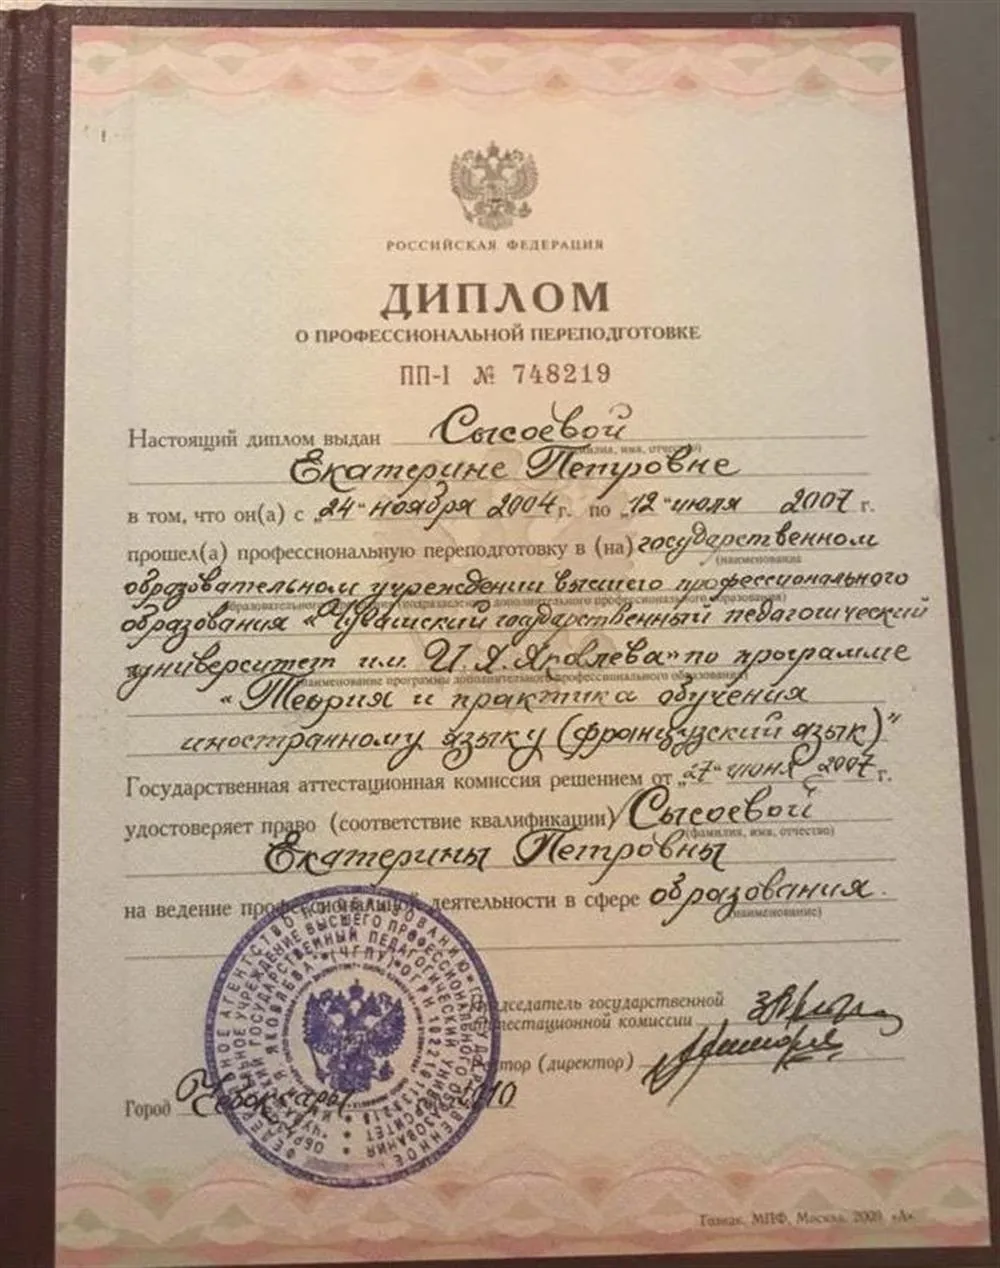 РОССИЙСКАЯ ФЕДЕРАЦИЯ
ДИПЛОМ
О ПРОФЕССИОНАЛЬНОЙ ПЕРЕПОДГОТОВКЕ
ПП-I № 748219
Настоящий диплом выдан Сысоевой
(фамилия, имя, отчество)
Екатерине Петровне
в том, что он(а) с „24“ ноября 2004 г. по „12“ июля 2007 г.
прошел(а) профессиональную переподготовку в (на) государственном
(наименование
образовательном учреждении высшего профессионального
образовательного (подразделения) дополнительного профессионального образования)
образования «Чувашский государственный педагогический
университет им. И.Я.Яковлева» по программе
(наименование программы дополнительного профессионального образования)
«Теория и практика обучения
иностранному языку (французский язык)"
Государственная аттестационная комиссия решением от „27“ июня 2007 г.
удостоверяет право (соответствие квалификации) Сысоевой
(фамилия, имя, отчество)
Екатерины Петровны
на ведение профессиональной деятельности в сфере образования.
(наименование)
Председатель государственной
аттестационной комиссии
Ректор (директор)
Город Чебоксары 2010
Гознак, МПФ, Москва, 2009 «А»